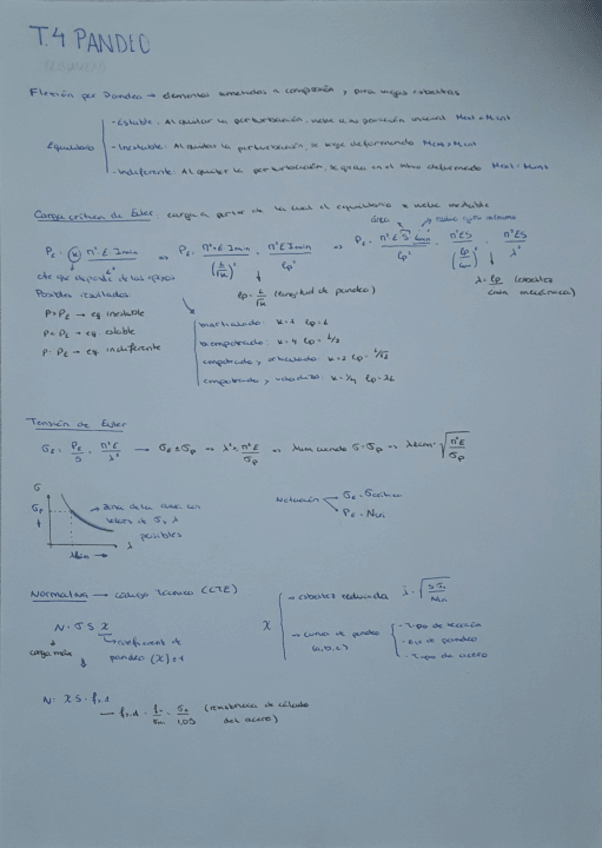 T.4 PANDEO
RESUMEN
Flexión por Pandeo → elementos sometidos a compresión y para vigas esbeltas
Equilibrio
- Estable: Al quitar la perturbación, vuelve a su posición inicial Mext < Mint
- Inestable: Al quitar la perturbación, se sigue deformando Mext > Mint
- Indiferente: Al quitar la perturbación, se queda en el deformado Mext = Mint
Carga crítica de Euler: carga a partir de la cual el equilibrio se vuelve inestable
área radio giro mínimo
PE = K π² E Imin / L² ⇒ PE = π² E Imin / (L/√K)² = π² E Imin / lp² ⇒ PE = π² E S imin² / lp² = π² E S / (lp/imin)² = π² E S / λ²
cte que depende de los apoyos
lp = L/√K (longitud de pandeo)
λ = lp (esbeltez mecánica)
imin
Posibles resultados:
P > PE → eq. inestable
P < PE → eq. estable
P = PE → eq. indiferente
biarticulado: K=1 lp=L
biempotrado: K=4 lp=L/2
empotrado y articulado: K=2 lp=L/√2
empotrado y voladizo: K=1/4 lp=2L
Tensión de Euler
σE = PE/S = π²E/λ² → σE ≤ σp ⇒ λ² ≥ π²E/σp ⇒ λlim cuando σ=σp ⇒ λlim = √π²E/σp
σ
σp
λlim → λ
→ zona de la curva con valores de σ, λ posibles
Notación
σE = σcrítica
PE = Ncri
Normativa → código técnico (CTE)
N = σ S χ
carga máx
coeficiente de pandeo (χ) ≤ 1
χ
→ esbeltez reducida λ = √
Ncri
→ curva de pandeo (a, b, c)
- Tipo de sección
- Eje de pandeo
- Tipo de acero
N = χ S · fyd
→ fyd = fy/γm = σe/1,05 (resistencia de cálculo del acero)